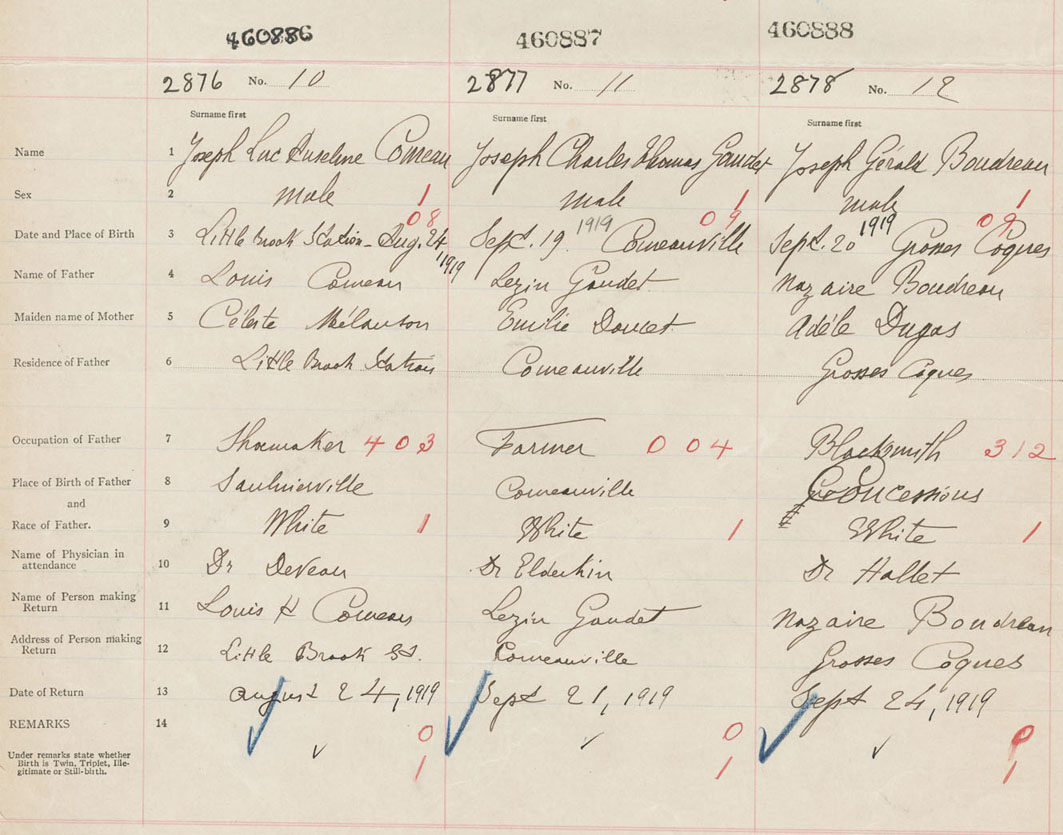 460886 460887 460888
2876 No. 10 2877 No. 11 2878 No. 12
Surname first Surname first Surname first
Name 1 Joseph Luc Anseline Comeau Joseph Charles Thomas Gaudet Joseph Gérald Boudreau
Sex 2 male 1 male 1 male 1
08 09 09
Date and Place of Birth 3 Little Brook Station - Aug. 24 1919 Sept. 19 1919 Comeauville Sept. 20 1919 Grosses Coques
Name of Father 4 Louis Comeau Lezin Gaudet Nazaire Boudreau
Maiden name of Mother 5 Céleste Melanson Emilie Doucet Adéle Dugas
Residence of Father 6 Little Brook Station Comeauville Grosses Coques
Occupation of Father 7 Shoemaker 403 Farmer 004 Blacksmith 312
Place of Birth of Father 8 Saulnierville Comeauville Concessions
and
Race of Father. 9 White 1 White 1 White 1
Name of Physician in
attendance 10 Dr DeVeau Dr Elderkin Dr Hallet
Name of Person making
Return 11 Louis H Comeau Lezin Gaudet Nazaire Boudreau
Address of Person making
Return 12 Little Brook St. Comeauville Grosses Coques
Date of Return 13 august 24, 1919 Sept 21, 1919 Sept 24, 1919
REMARKS 14 0 0 0
Under remarks state whether
Birth is Twin, Triplet, Ille-
gitimate or Still-birth. 1 1 1